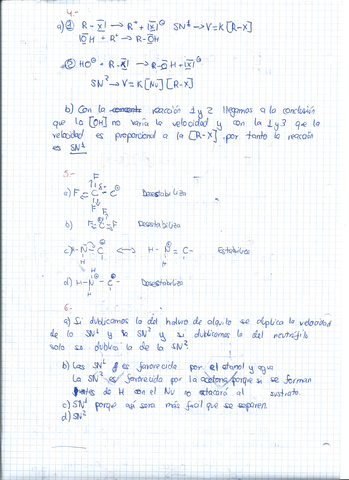 4.-
a) ① R-X̄| → R⁺ + |X̄|⊖ SN¹ → V=K[R-X]
|ŌH + R⁺ → R-ŌH
② HO⊖ + R-X̄| → R-ŌH + |X̄|⊖
SN² → V=K[Nu][R-X]
b) Con la reacción 1 y 2 llegamos a la conclusión
que la [OH] no varía la velocidad y con la 1 y 3 que la
velocidad es proporcional a la [R-X] por tanto la reacción
es SN¹
5.-
F
a) F-C-C⊕ Desestabiliza
F
b) F-C-F Desestabiliza
c) H-N-C⊕ ↔ H-N⊕=C- Estabiliza
H H
H
d) H-N⊕-C⊕- Desestabiliza
H
6.-
a) Si dublicamos la del haluro de alquilo se duplica la velocidad
de la SN¹ y la SN² y si dublicamos la del nucleófilo
solo se dublica la de la SN².
b) Las SN¹ es favorecida por el etanol y agua
La SN² es favorecida por la acetona porque si se forman
puentes de H con el Nu no atacará al sustrato.
c) SN¹ porque así sera más facil que se separen.
d) SN²